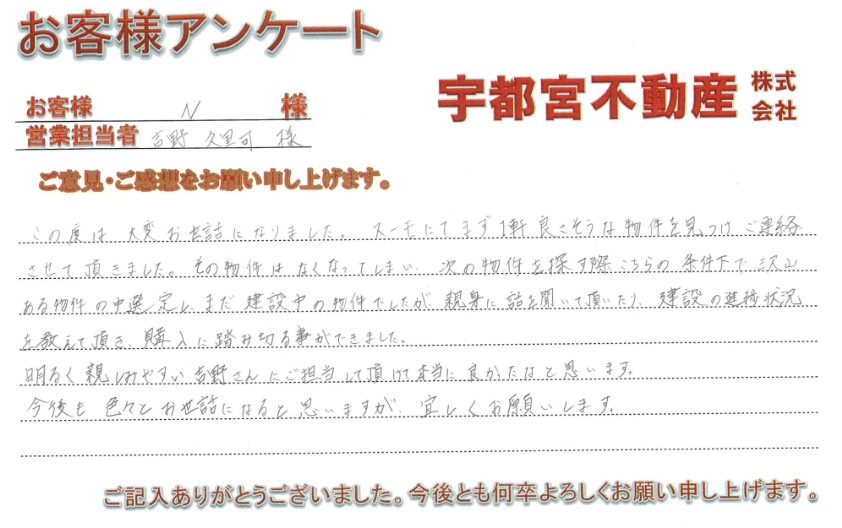 お客様アンケート
宇都宮不動産 株式会社
お客様 N 様
営業担当者 吉野 久里可 様
ご意見・ご感想をお願い申し上げます。
この度は 大変お世話になりました。 スーモにてまず1軒 良さそうな物件を見つけ ご連絡
させて頂きました。その物件はなくなってしまい、次の物件を探す際こちらの条件下で沢山
ある物件の中選定し、まだ建設中の物件でしたが 親身に話を聞いて頂いたり、建設の進捗状況
を教えて頂き、購入に踏み切る事ができました。
明るく親しみやすい吉野さんにご担当して頂けて本当に良かったなと思います。
今後も色々とお世話になると思いますが、宜しくお願いします。
ご記入ありがとうございました。今後とも何卒よろしくお願い申し上げます。